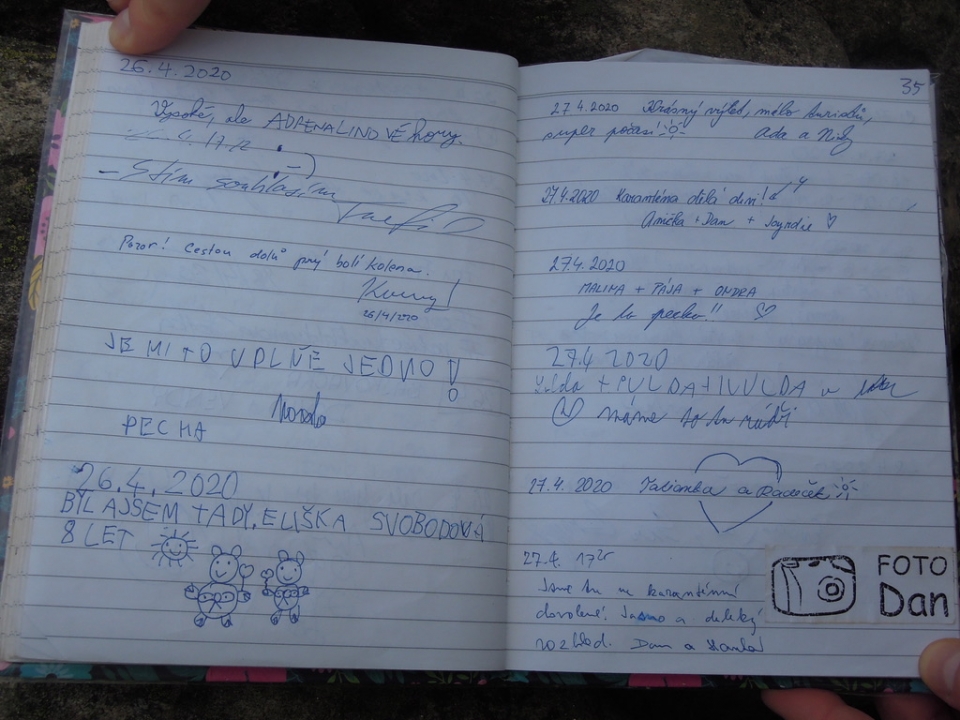 26.4.2020
Vysoké, ale ADRENALINOVÉ hory.
- S tím souhlasím
Pozor! Cestou dolů prý bolí kolena.
26/4/2020
JE MI TO ÚPLNĚ JEDNO!
PECHA
26.4.2020
BYLA JSEM TADY. ELIŠKA SVOBODOVÁ
8 LET
35
27.4.2020 Krásný výhled, málo turistů,
super počasí!
Ada a
27.4.2020 Karanténa dělá divi!
Anička + Dan +
27.4.2020
MALINA + PÁJA + ONDRA
Je to pecka!!
27.4 2020
máme to tu rádi
27.4.2020 Tatianka a Radeček
27.4. 17
Jsme tu na karanténní
dovolené! Jasno a daleký
rozhled. Dan a
FOTO
Dan